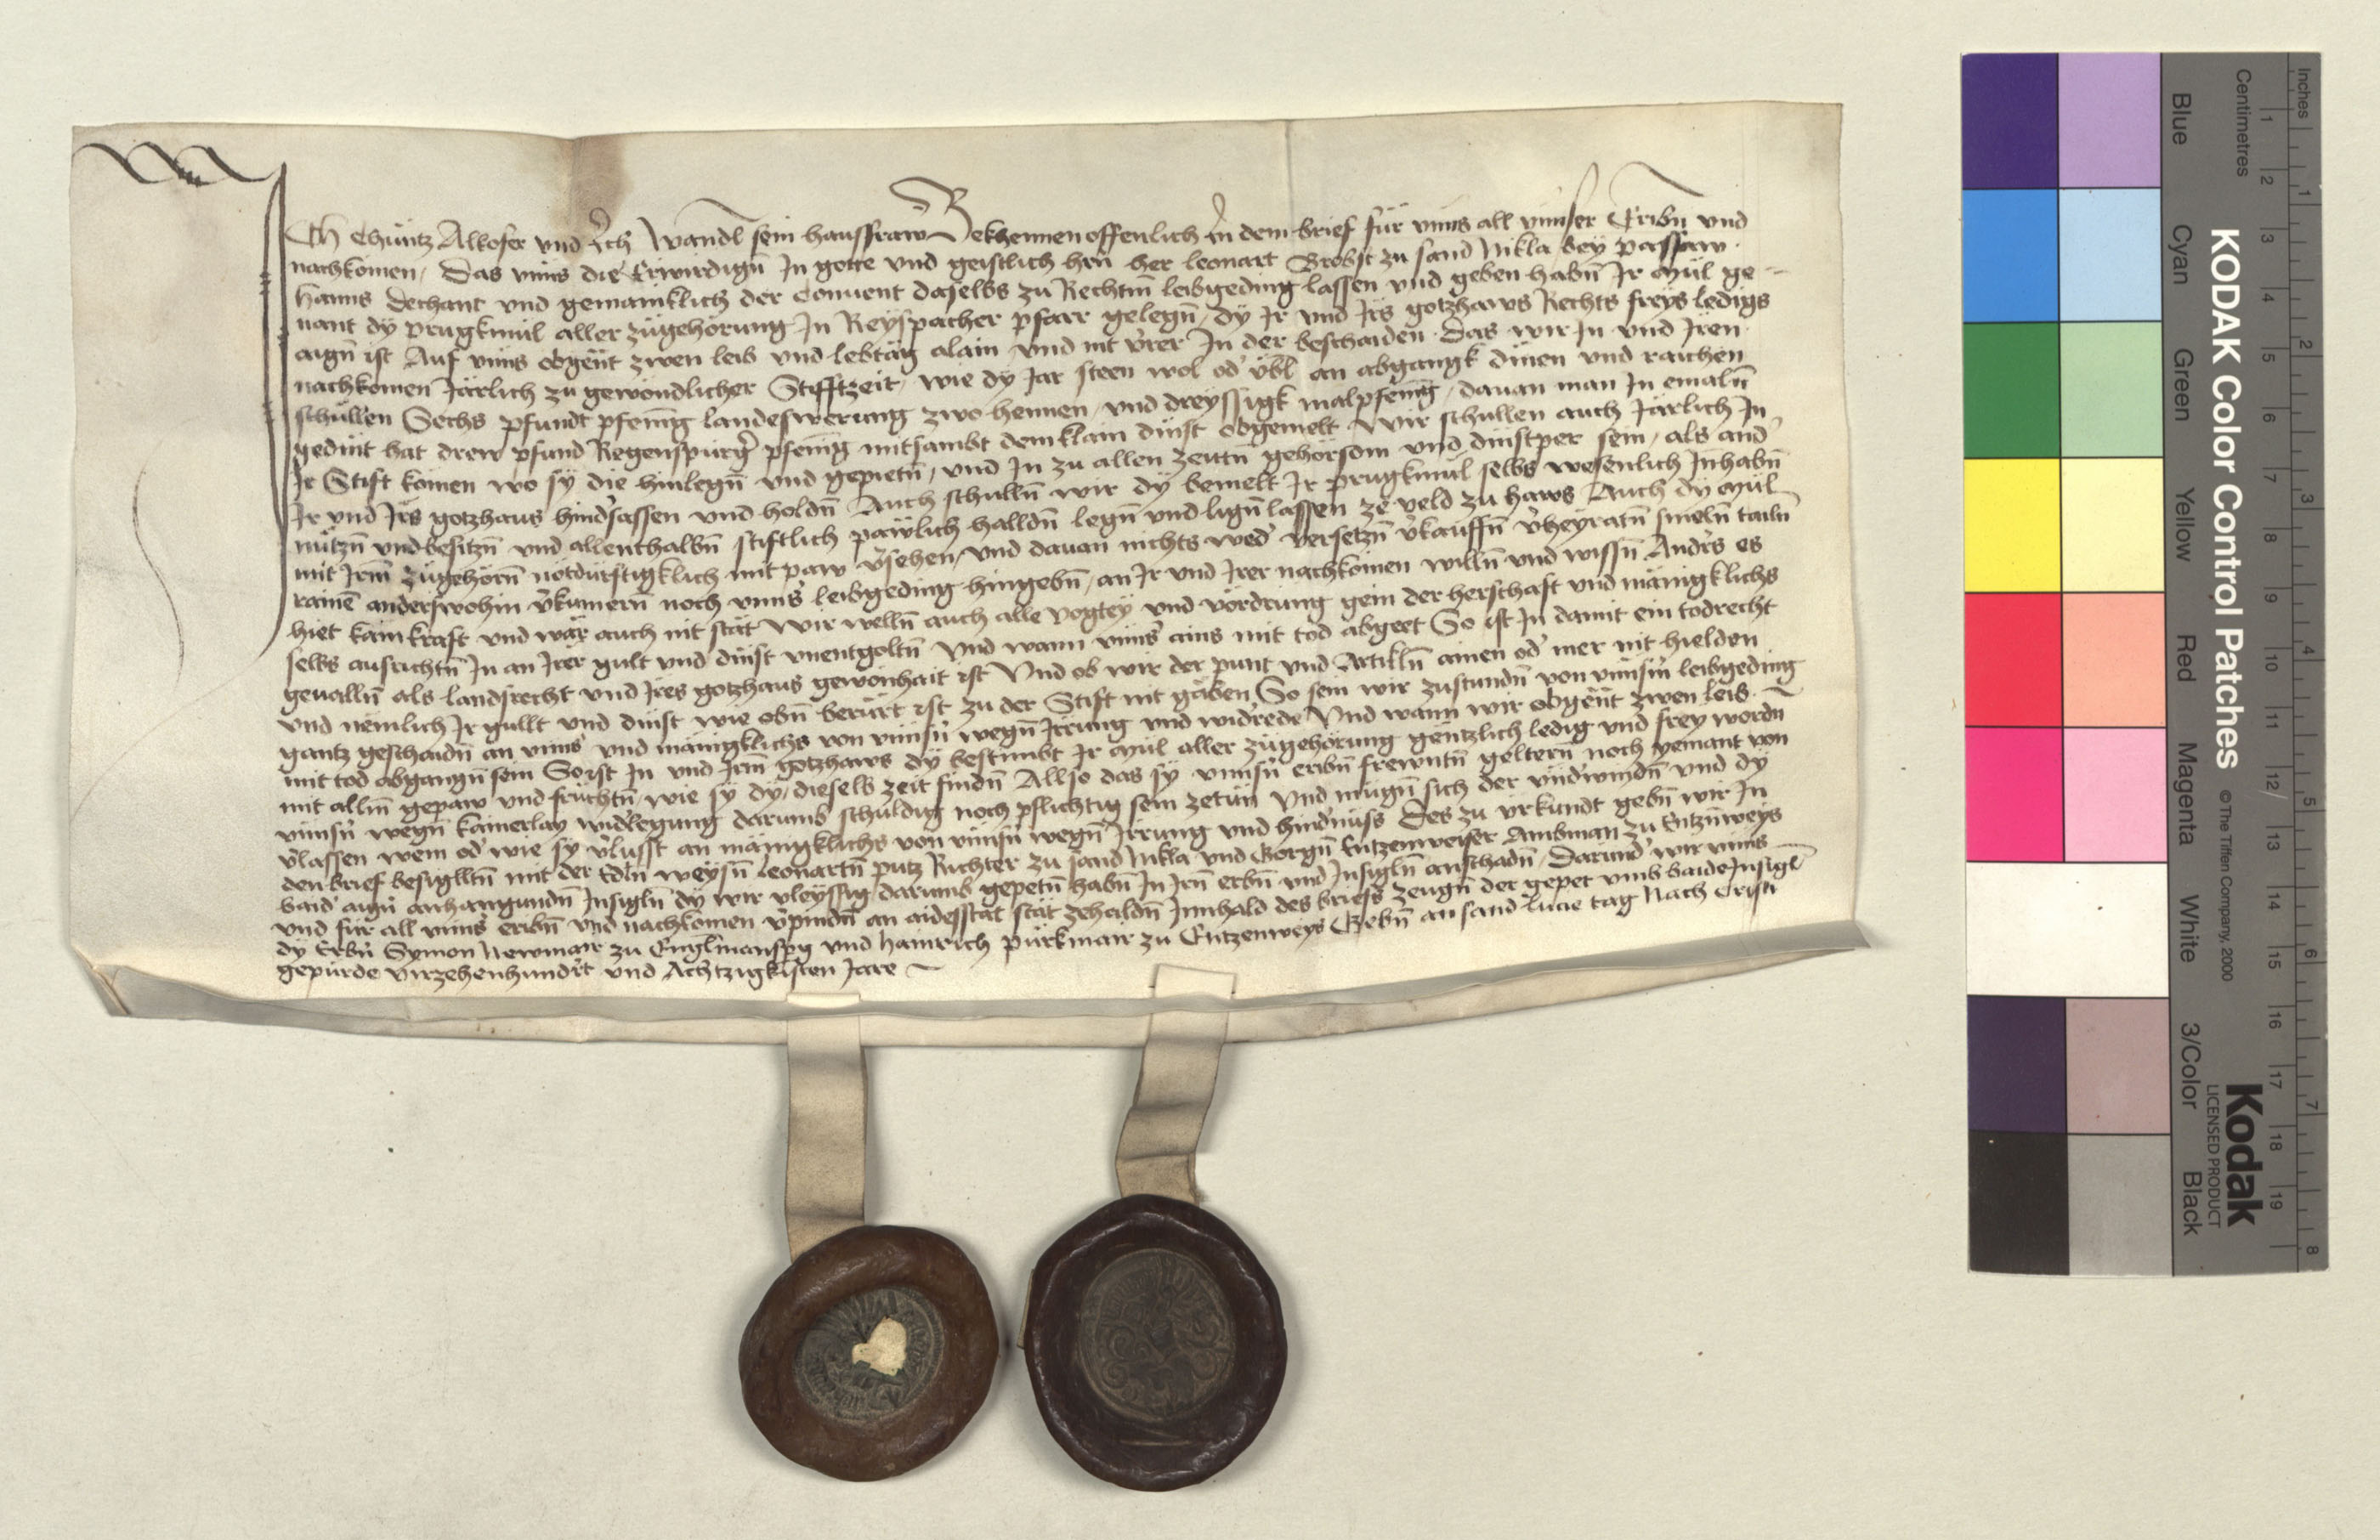 Ich Chüntz Alkofer vnd Ich Wandl sein haussfraw Bekhennen offenlich In dem brief für vnns all vnnser Eribn̄ vnd
nachkömen, Das vnns die Erwirdign̄ In gotte vnd geistlich hrn̄ her leonart Brobst zu sand Nikla bey passaw.
hanns dechant vnd gemainklich der Conuent daselbs zu Rechtm̄ leibgeding lassen vnd geben habn̄ Ir Mül ge-
nant dy prugkmül aller zügehörung In Reyspacher pfarr gelegn̄, dy Ir vnd Irs gotzhaws Rechts freys ledigs
aign̄ ist Auf vnns obgen̄t zwen leib vnd lebtäg alain vnd nit v̄rer In der beschaiden. Das wir In vnd Iren
nachkömen Järlich zu gewöndlicher Stifftzeit, wie dy Jar steen wol od' übl an abgangk dinen vnd raichen
schüllen Sechs pfundt pfening landeswerung zwo hennen, vnd dreyssigk malpfening, dauan man In emaln̄
gedint hat drew pfund Regenspurg' pfening mitsambt dem klain dinst obgemelt Wir schullen auch Järlich In
Ir Stift kömen wo sy die hinlegn̄ vnd gepietn̄, vnd In zu allen zeittn̄ gehörsom vnd dinstper sein, als and'
Ir vnd Irs gotzhaus hind'sassen vnd holdn̄ Auch schulln̄ wir dy bemelt Ir prugkmül selbs wesenlich Inhabn̄
nützn̄ vnd besitzn̄ vnd allenthalbn̄ stiftlich päwlich halldn̄ legn̄ vnd lign̄ lassen ze veld zu haws Auch dy Mül
mit Irm̄ zügehörn̄ notdürftigklich mit paw v'sehen, vnd dauan nichts wed' versetzn̄ v'kauffn̄ v'heyratn̄ smeln̄ tailn̄
rainē anderswohin v'kumern̄ noch vnns' leibgeding hingebn̄, an Ir vnd Irer nachkömen willn̄ vnd wissn̄ Andrs es
hiet kain kraft vnd wär auch nit stät Wir welln̄ auch alle vogtey vnd vördrung gein der herschaft vnd mänigklichs
selbs ausrichtn̄ In an Irer gult vnd dinst vnentgoltn̄ Vnd wann vnns' ains mit tod abgeet So ist In damit ein todrecht
geualln̄ als landsrecht vnd Ires gotzhaus gewönhait ist Vnd ob wir der punt vnd Artikln̄ ainen od' mer nit hielden
vnd nemlich Ir gullt vnd dinst wie obn̄ berürt ist zu der Stift nit gäben So sein wir zustundn̄ von vnnsn̄ leibgeding
gantz geschaidn̄ an vnns' vnd mänigklichs von vnnsn̄ wegn̄ Irrung vnd wid'rede Vnd wann wir obgen̄t zwen leib
mit tod abgangn̄ sein So ist In vnd Irm̄ gotzhaws dy bestimbt Ir Mül aller zügehörung gentzlich ledig vnd frey wordn̄
mit alln̄ gepaw vnd früchtn̄, wie sy dy, dieselb zeit findn̄ Allso das sy vnnsn̄ eribn̄ frewntn̄ geltern̄ noch yemant von
vnnsn̄ wegn̄ kainerlay wid'legung darumb schuldig noch pflichtig sein zetun̄ Vnd mügn̄ sich der vnd'windn̄ vnd dy
v'lassen wem od' wie sy v'lusst an mänigklichs von vnnsn̄ wegn̄ Irrung vnd hind'nuss Des zu vrkundt gebn̄ wir In
den brief besiglltn̄ mit der Edln̄ weysn̄ leonartn̄ putz Richter zu sand Nikla vnd Görgn̄ Entzenweiser Ambman zu Entznweys
baid' aign̄ anhangundn̄ Insigln̄ dy wir vleyssig darumb gepetn̄ habn̄ In Irn̄ erbn̄ vnd Insigln̄ an schadn̄, Darund' wir vnns
vnd für all vnns' eribn̄ vnd nachkömen v'pindn̄ an aidesstat stät zehaldn̄ Innhald des briefs zeugn̄ der gepet vmb baide Insigl
dy Erbn̄ Symon Newmair zu Englmansperg vnd hainrich pürkmair zu Entzenweys Gebn̄ an sand lucie tag Nach Cristi
gepurde virzehenhundrt vnd Achtzigkisten Jare
KODAK Color Control Patches
© The Tiffen Company, 2000
Kodak
LICENSED PRODUCT
Blue Cyan Green Yellow Red Magenta White 3/Color Black
Centimetres 1 2 3 4 5 6 7 8 9 10 11 12 13 14 15 16 17 18 19
Inches 1 2 3 4 5 6 7 8